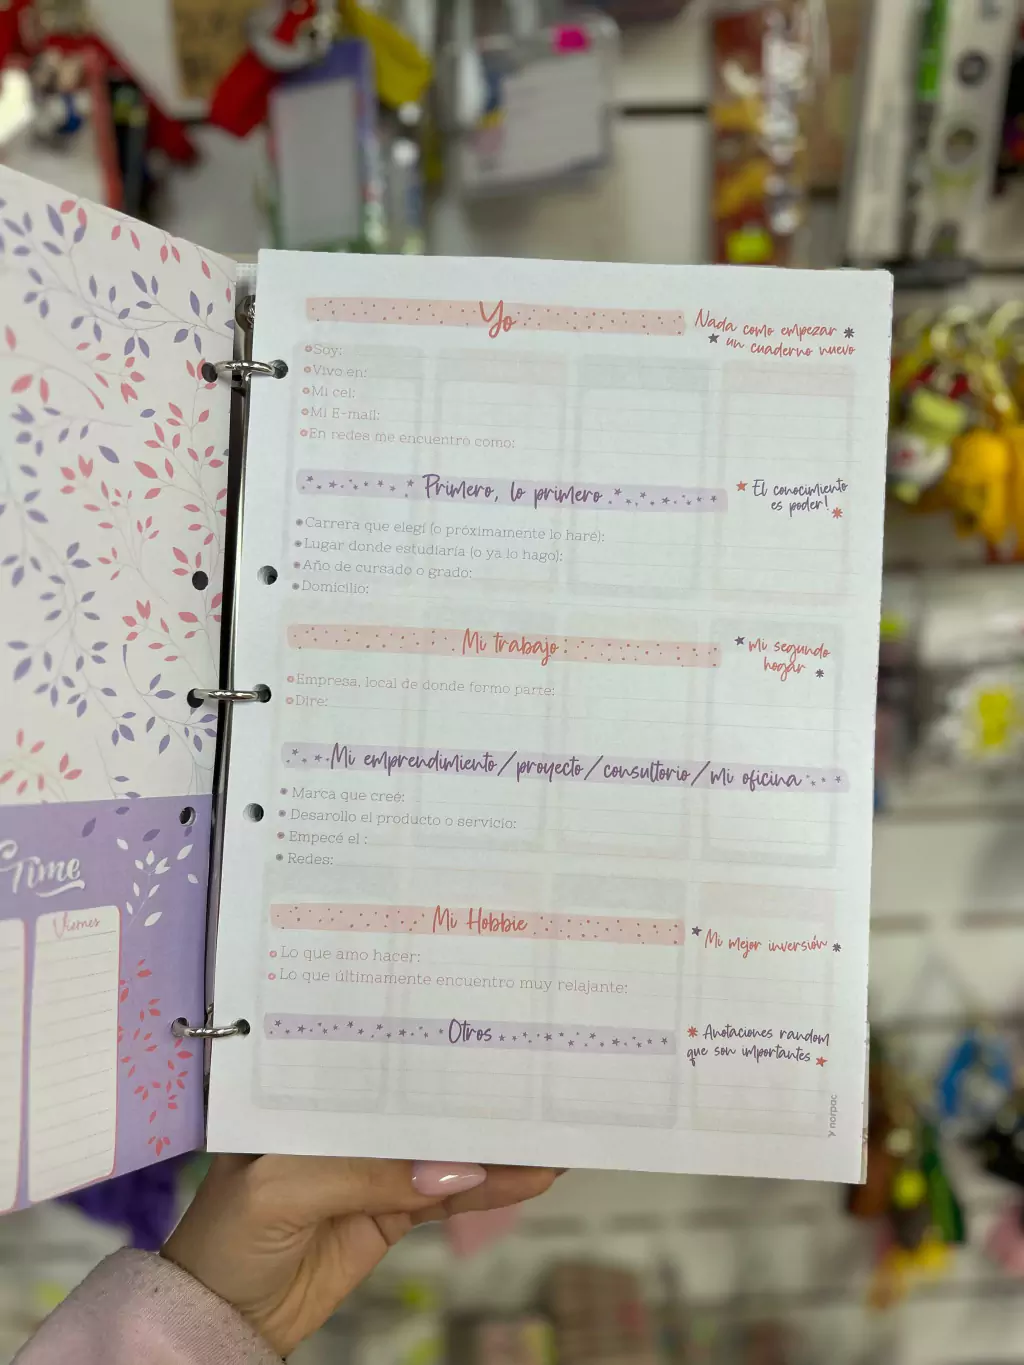 Yo
Nada como empezar
un cuaderno nuevo
Soy:
Vivo en:
Mi cel:
Mi E-mail:
En redes me encuentro como:
Primero, lo primero
El conocimiento
es poder!
Carrera que elegí (o próximamente lo haré):
Lugar donde estudiaría (o ya lo hago):
Año de cursado o grado:
Domicilio:
Mi trabajo
Mi segundo
hogar
Empresa, local de donde formo parte:
Dire:
Mi emprendimiento/proyecto/consultorio/mi oficina
Marca que creé:
Desarollo el producto o servicio:
Empecé el :
Redes:
Mi Hobbie
Mi mejor inversión
Lo que amo hacer:
Lo que últimamente encuentro muy relajante:
Otros
Anotaciones random
que son importantes
norpac
Time
Viernes